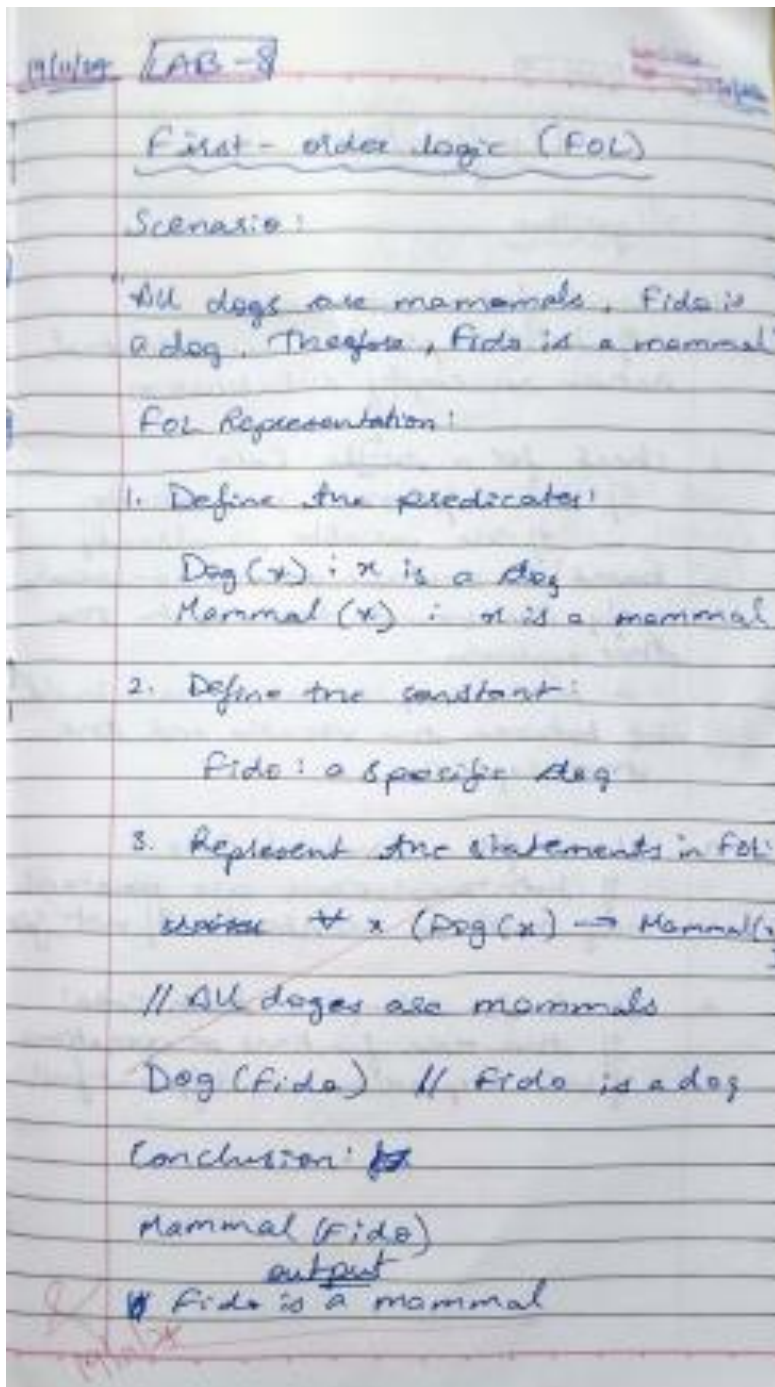 19/11/24 LAB-8
First-order logic (FOL)
Scenario:
All dogs are mamomals. Fido is
a dog. Thegfore, Fido is a mammal
FOL Representation:
1. Define the predicates:
Dog(x) : x is a dog
Mammal(x) : x is a mammal
2. Define the constant:
Fido: a specific dog
3. Represent the statements in FOL:
∀ x (Dog(x) → Mammal(x
// All doges are mammals
Dog(Fido) // Fido is a dog
Conclusion:
Mammal(Fido)
output
Fido is a mammal